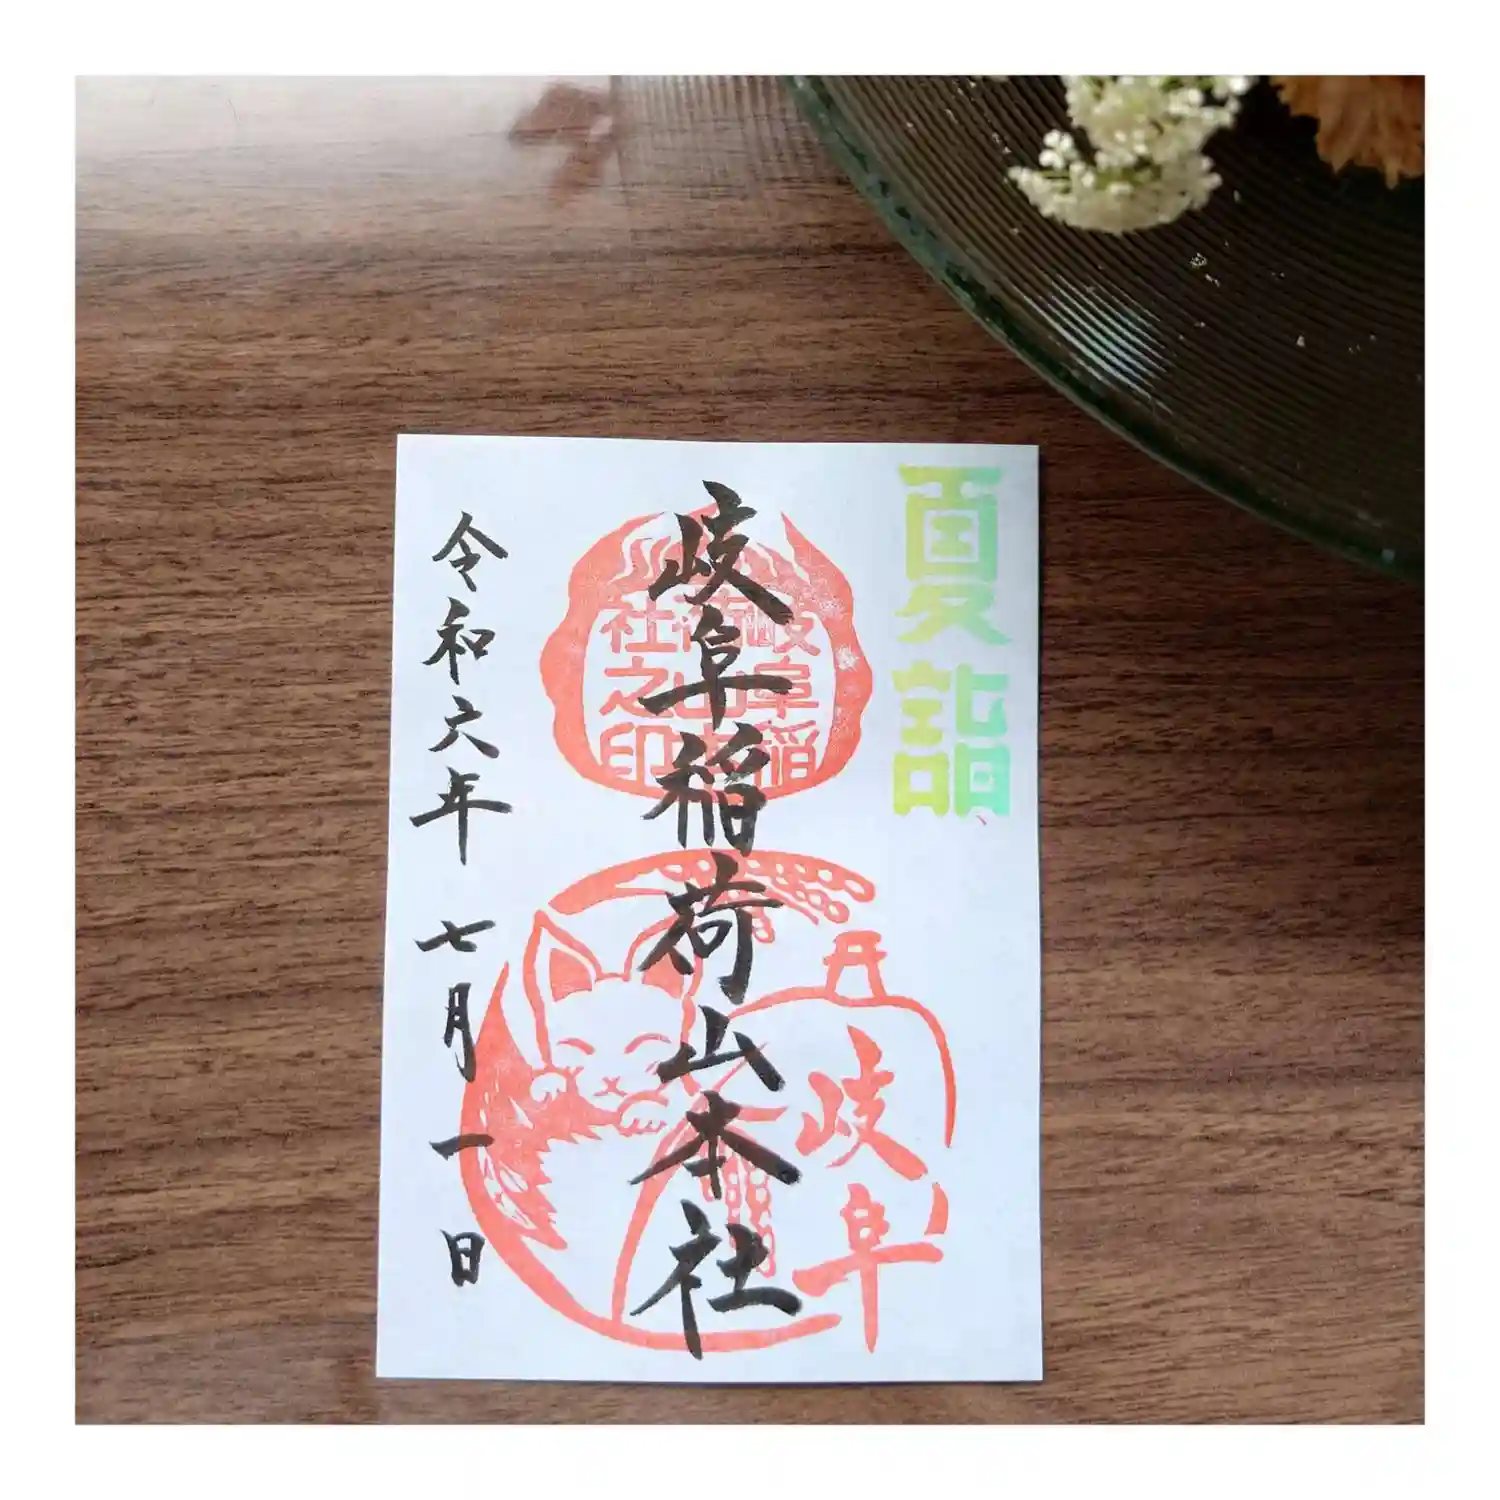 夏詣
岐阜稲荷山本社
岐阜稲
荷山本
社之印
岐阜
令和六年 七月一日